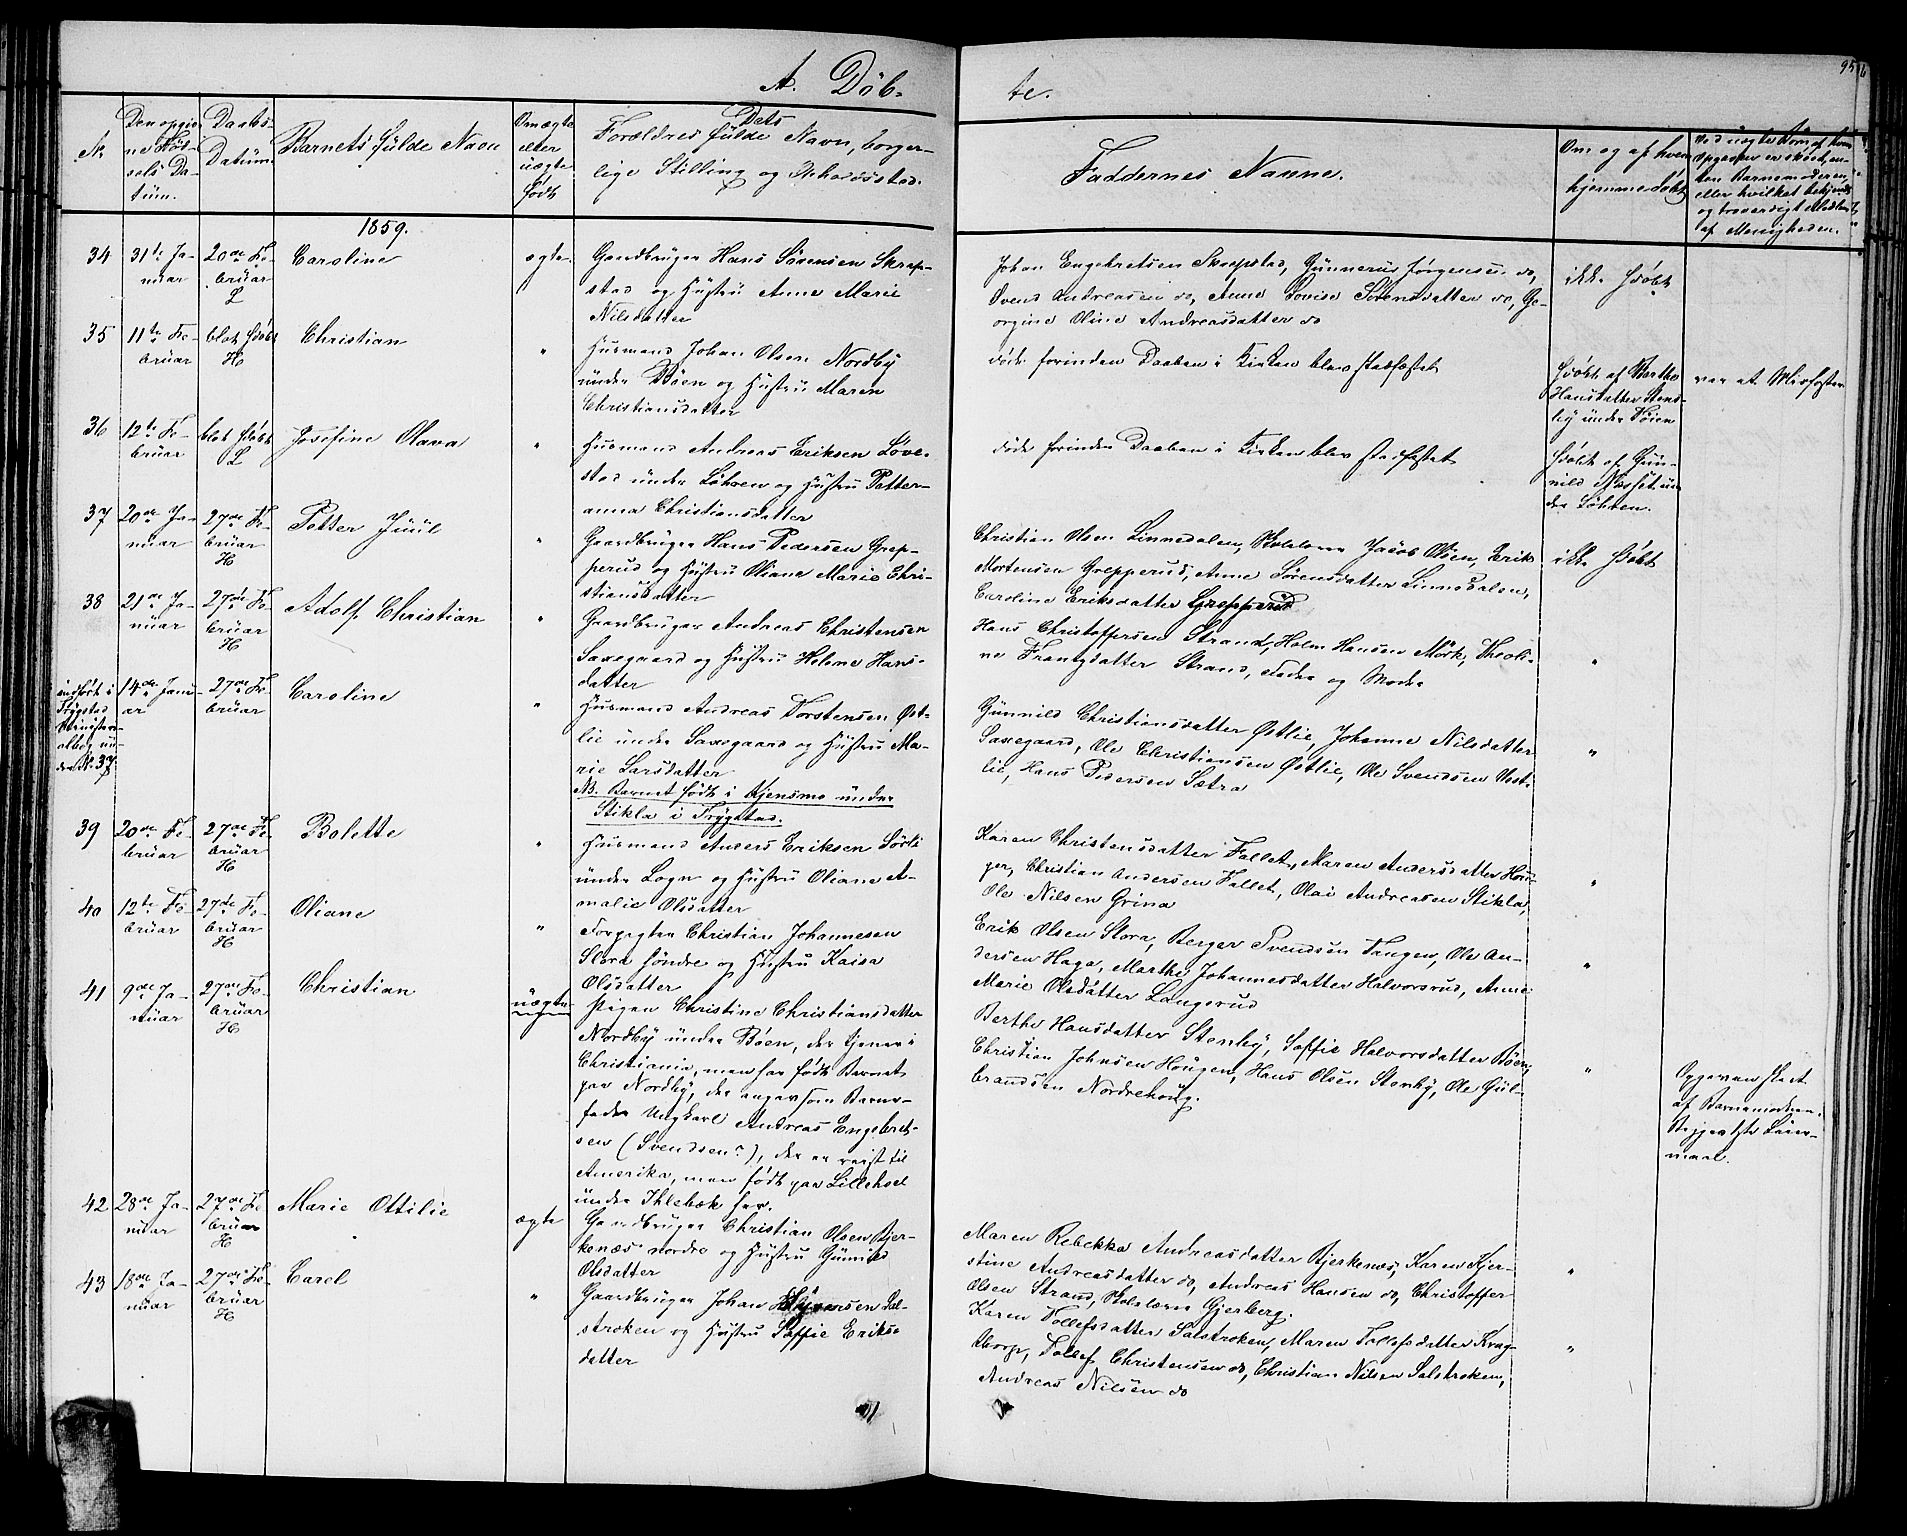 A. Döb-
te.
95 b
No
Den opgiv-
ne Födt-
sels Da-
tum.
Daabs-
Datum.
Barnets fulde Navn
Om ægte
eller
uægte
födt
Dets
Forældres fulde Navn, borger-
lige Stilling og Opholdssted.
Faddernes Navne.
Om og af hvem
hjemmedöbt
Ved uægte Börn af hvem
Opgaven er skeet, en-
ten Barnemoderen,
eller hvilket bekjendt
og troværdigt Medlem
af Menigheden.
1859.
34
31te Ja-
nuar
20de Fe-
bruar
L
Caroline
ægte
Gaardbruger Hans Sörensen Skrep-
stad og Hustru Anne Marie
Nilsdatter
Johan Engebretsen Skrepstad, Gunnerus Jörgensen do,
Svend Andreasen do, Anne Lovise Sörensdatter do, Ge-
orgine Oline Andreasdatter do
ikke hjdöbt
35
11te Fe-
bruar
blot hjdöbt
H
Christian
"
Husmand Johan Olsen Nordby
under Böen og Hustru Maren
Christiansdatter
döde forinden Daaben i Kirken blev stadfæstet
hjdöbt af Berthe
Hansdatter Sten-
by under Böen
var et Misfoster
36
12te Fe-
bruar
blot hjdöbt
L
Josefine Olava
"
Husmand Andreas Eriksen Löve-
stad under Löhren og Hustru Petter-
anna Christiansdatter
döde forinden Daaben i Kirken blev stadfæstet
hjdöbt af Gun-
nild Næsset un-
der Löhren.
37
20de Ja-
nuar
27de Fe-
bruar
H
Petter Juul
"
Gaardbruger Hans Pedersen Grep-
perud og Hustru Oliane Marie Chri-
stiansdatter
Christian Olsen Linnedalen, Skolelærer Jacob Olsen, Erik
Mortensen Grepperud, Anne Sörensdatter Linnedalen,
Caroline Eriksdatter Grepperud
ikke hjdöbt
38
21de Ja-
nuar
27de Fe-
bruar
H
Adolf Christian
"
Gaardbruger Andreas Christensen
Saxegaard og Hustru Helene Hans-
datter
Hans Christoffersen Strand, Holm Hansen Mörk, Theoli-
ne Frantzdatter Strand, Fader og Moder
"
indfört i
Trygstad
Minister-
albog un-
der No. 37
14de Janu-
ar
27de Fe-
bruar
Caroline
"
Husmand Andreas Torstensen Öst-
lie under Saxegaard og Hustru Ma-
rie Larsdatter
NB. Barnet födt i Kjensmo under
Stikla i Trygstad.
Gunnild Christiansdatter Östlie, Johanne Nilsdatter
Saxegaard, Ole Christiansen Östlie, Ole Svendsen Vest-
lie, Hans Pedersen Sætra
"
39
20de Fe-
bruar
27de Fe-
bruar
H
Bolette
"
Husmand Anders Eriksen Sörli
under Logn og Hustru Oliane A-
malie Olsdatter
Karen Christensdatter Fallet, Maren Andersdatter Hau-
ger, Christian Andersen Fallet, Olai Andreasen Stikla,
Ole Nilsen Grina
"
40
12te Fe-
bruar
27de Fe-
bruar
H
Oliane
"
Forpagter Christian Johannesen
Slora söndre og Hustru Kaisa
Olsdatter
Erik Olsen Slora, Berger Svendsen Tangen, Ole An-
dersen Haga, Marthe Johannesdatter Halvorsrud, Anne
Marie Olsdatter Langsrud
"
41
9de Ja-
nuar
27de Fe-
bruar
H
Christian
uægte
Pigen Christine Christiansdatter
Nordby under Böen, der tjener i
Christiania, men har födt Barnet
paa Nordby, der angav som Barne-
fader Ungkarl Andreas Engebret-
sen (Svendsen?), der er reist til
Amerika, men födt paa Lillehol
under Ihlebæk her.
Berthe Hansdatter Stenby, Soffie Halvorsdatter Böen,
Christian Johnsen Haugen, Hans Olsen Stenby, Ole Gul-
brandsen Nordrehaug.
"
Opgaven skeet
af Barnemoderen.
Begges 1ste Leier-
maal.
42
28de Ja-
nuar
27de Fe-
bruar
H
Marie Ottilie
ægte
Gaardbruger Christian Olsen Bjer-
kenæs nordre og Hustru Gunnild
Olsdatter
Maren Rebekka Andreasdatter Bjerkenæs, Karen Kjer-
stine Andreasdatter do, Andreas Hansen do, Christoffer
Olsen Strand, Skolelærer Gjerberg.
"
43
18de Ja-
nuar
27de Fe-
bruar
H
Carel
"
Gaardbruger Johan Syversen Sal-
stroken og Hustru Soffie Eriks-
datter
Karen Tollefsdatter Salstroken, Maren Tollefsdatter Krag-
torp, Tollef Christensen do, Christian Nilsen Salstroken,
Andreas Nilsen do
"